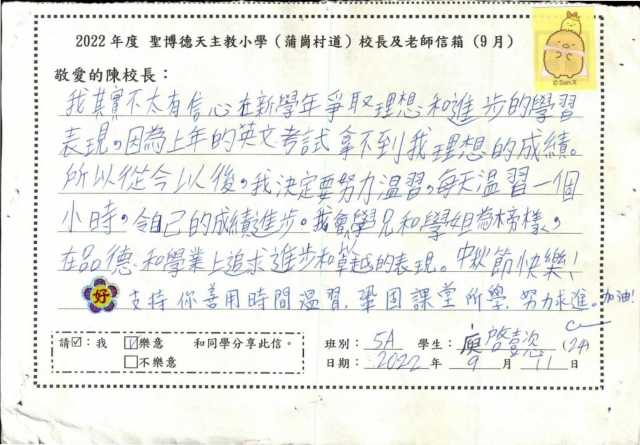 2022年度 聖博德天主教小學(蒲崗村道)校長及老師信箱(9月)
敬愛的陳校長：
我其實不太有信心在新學年爭取理想和進步的學習
表現。因為上年的英文考試拿不到我理想的成績。
所以從今以後，我決定要努力溫習，每天溫習一個
小時，令自己的成績進步。我會以學兄和學姐為榜樣，
在品德和學業上追求進步和卓越的表現。中秋節快樂！
好 支持你善用時間溫習，鞏固課堂所學，努力求進。加油！
請☑：我 ☑樂意 和同學分享此信。 班別：5A 學生： (24)
□不樂意 日期：2022年9月11日